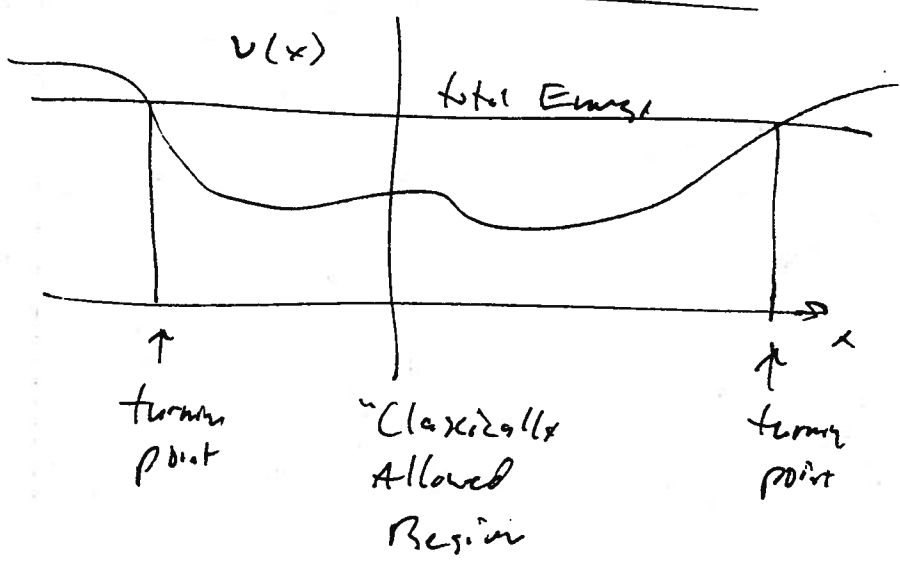 V(x)
total Energy
x
turning
point
"Classically
Allowed
Region
turning
point